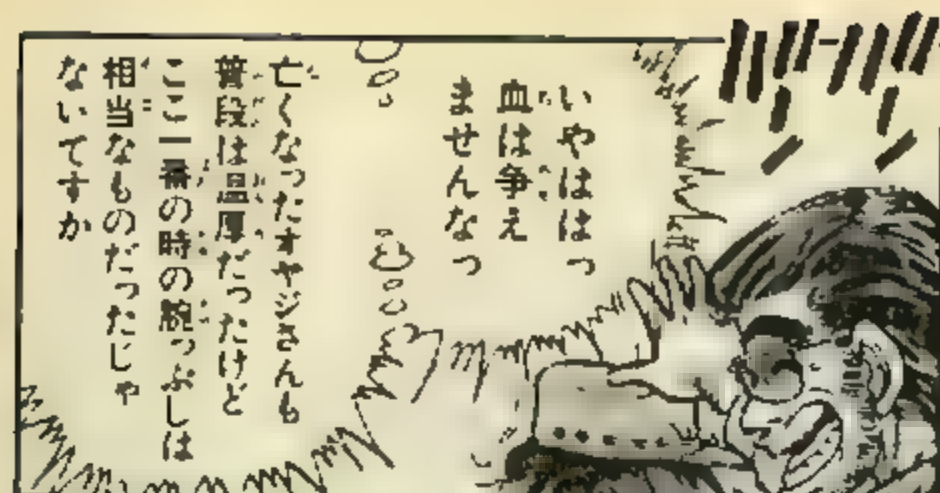 いやははっ
血は争え
ませんなっ
亡くなったオヤジさんも
普段は温厚だったけど
ここ一番の時の腕っぷしは
相当なものだったじゃ
ないですか